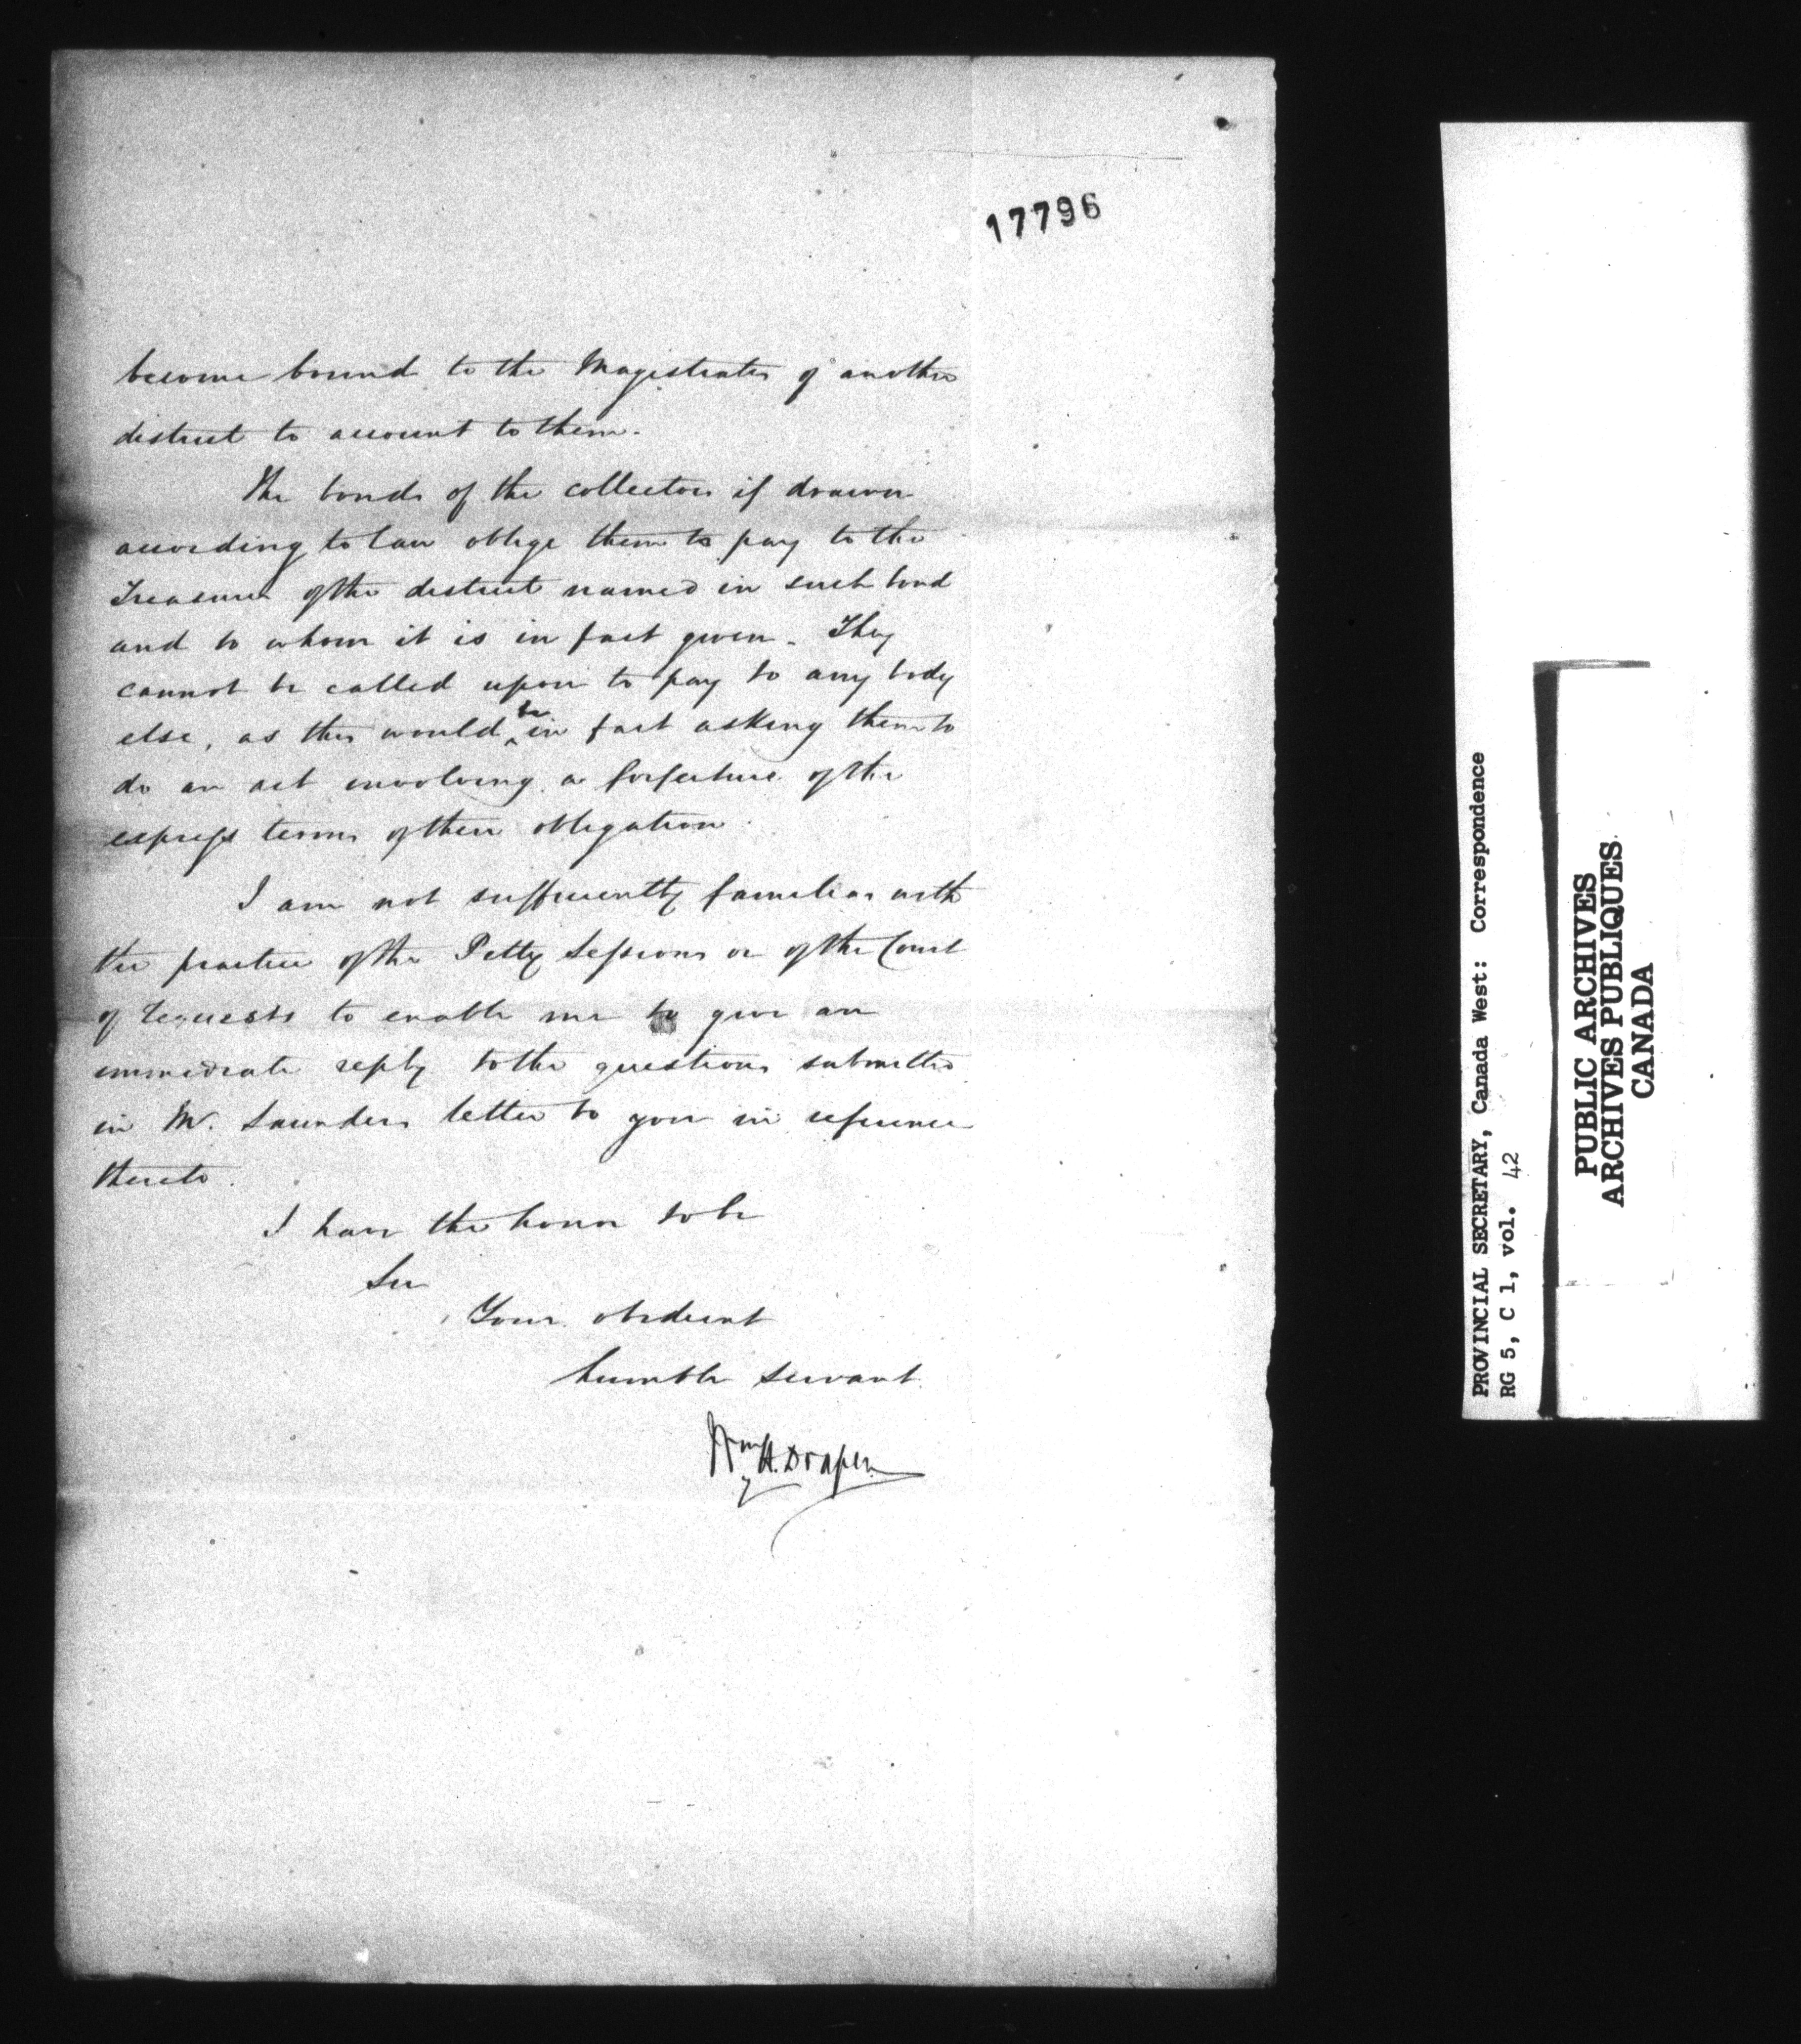 17796
become bound to the Magistrates of another
district to account to them.
The bonds of the collectors if drawn
according to law oblige them to pay to the
Treasurer of the district named in such bond
and to whom it is in fact given. They
cannot be called upon to pay to any body
else, as this would be in fact asking them to
do an act involving a forfeiture of the
express terms of their obligation.
I am not sufficiently familiar with
the practice of the Petty Sessions or of the Court
of requests to enable me to give an
immediate reply to the questions submitted
in Mr. Saunders letter to you in reference
thereto.
I have the honor to be
Sir
Your obedient
humble servant
Wm H. Draper
PROVINCIAL SECRETARY, Canada West: Correspondence
RG 5, C 1, vol. 42
PUBLIC ARCHIVES
ARCHIVES PUBLIQUES
CANADA